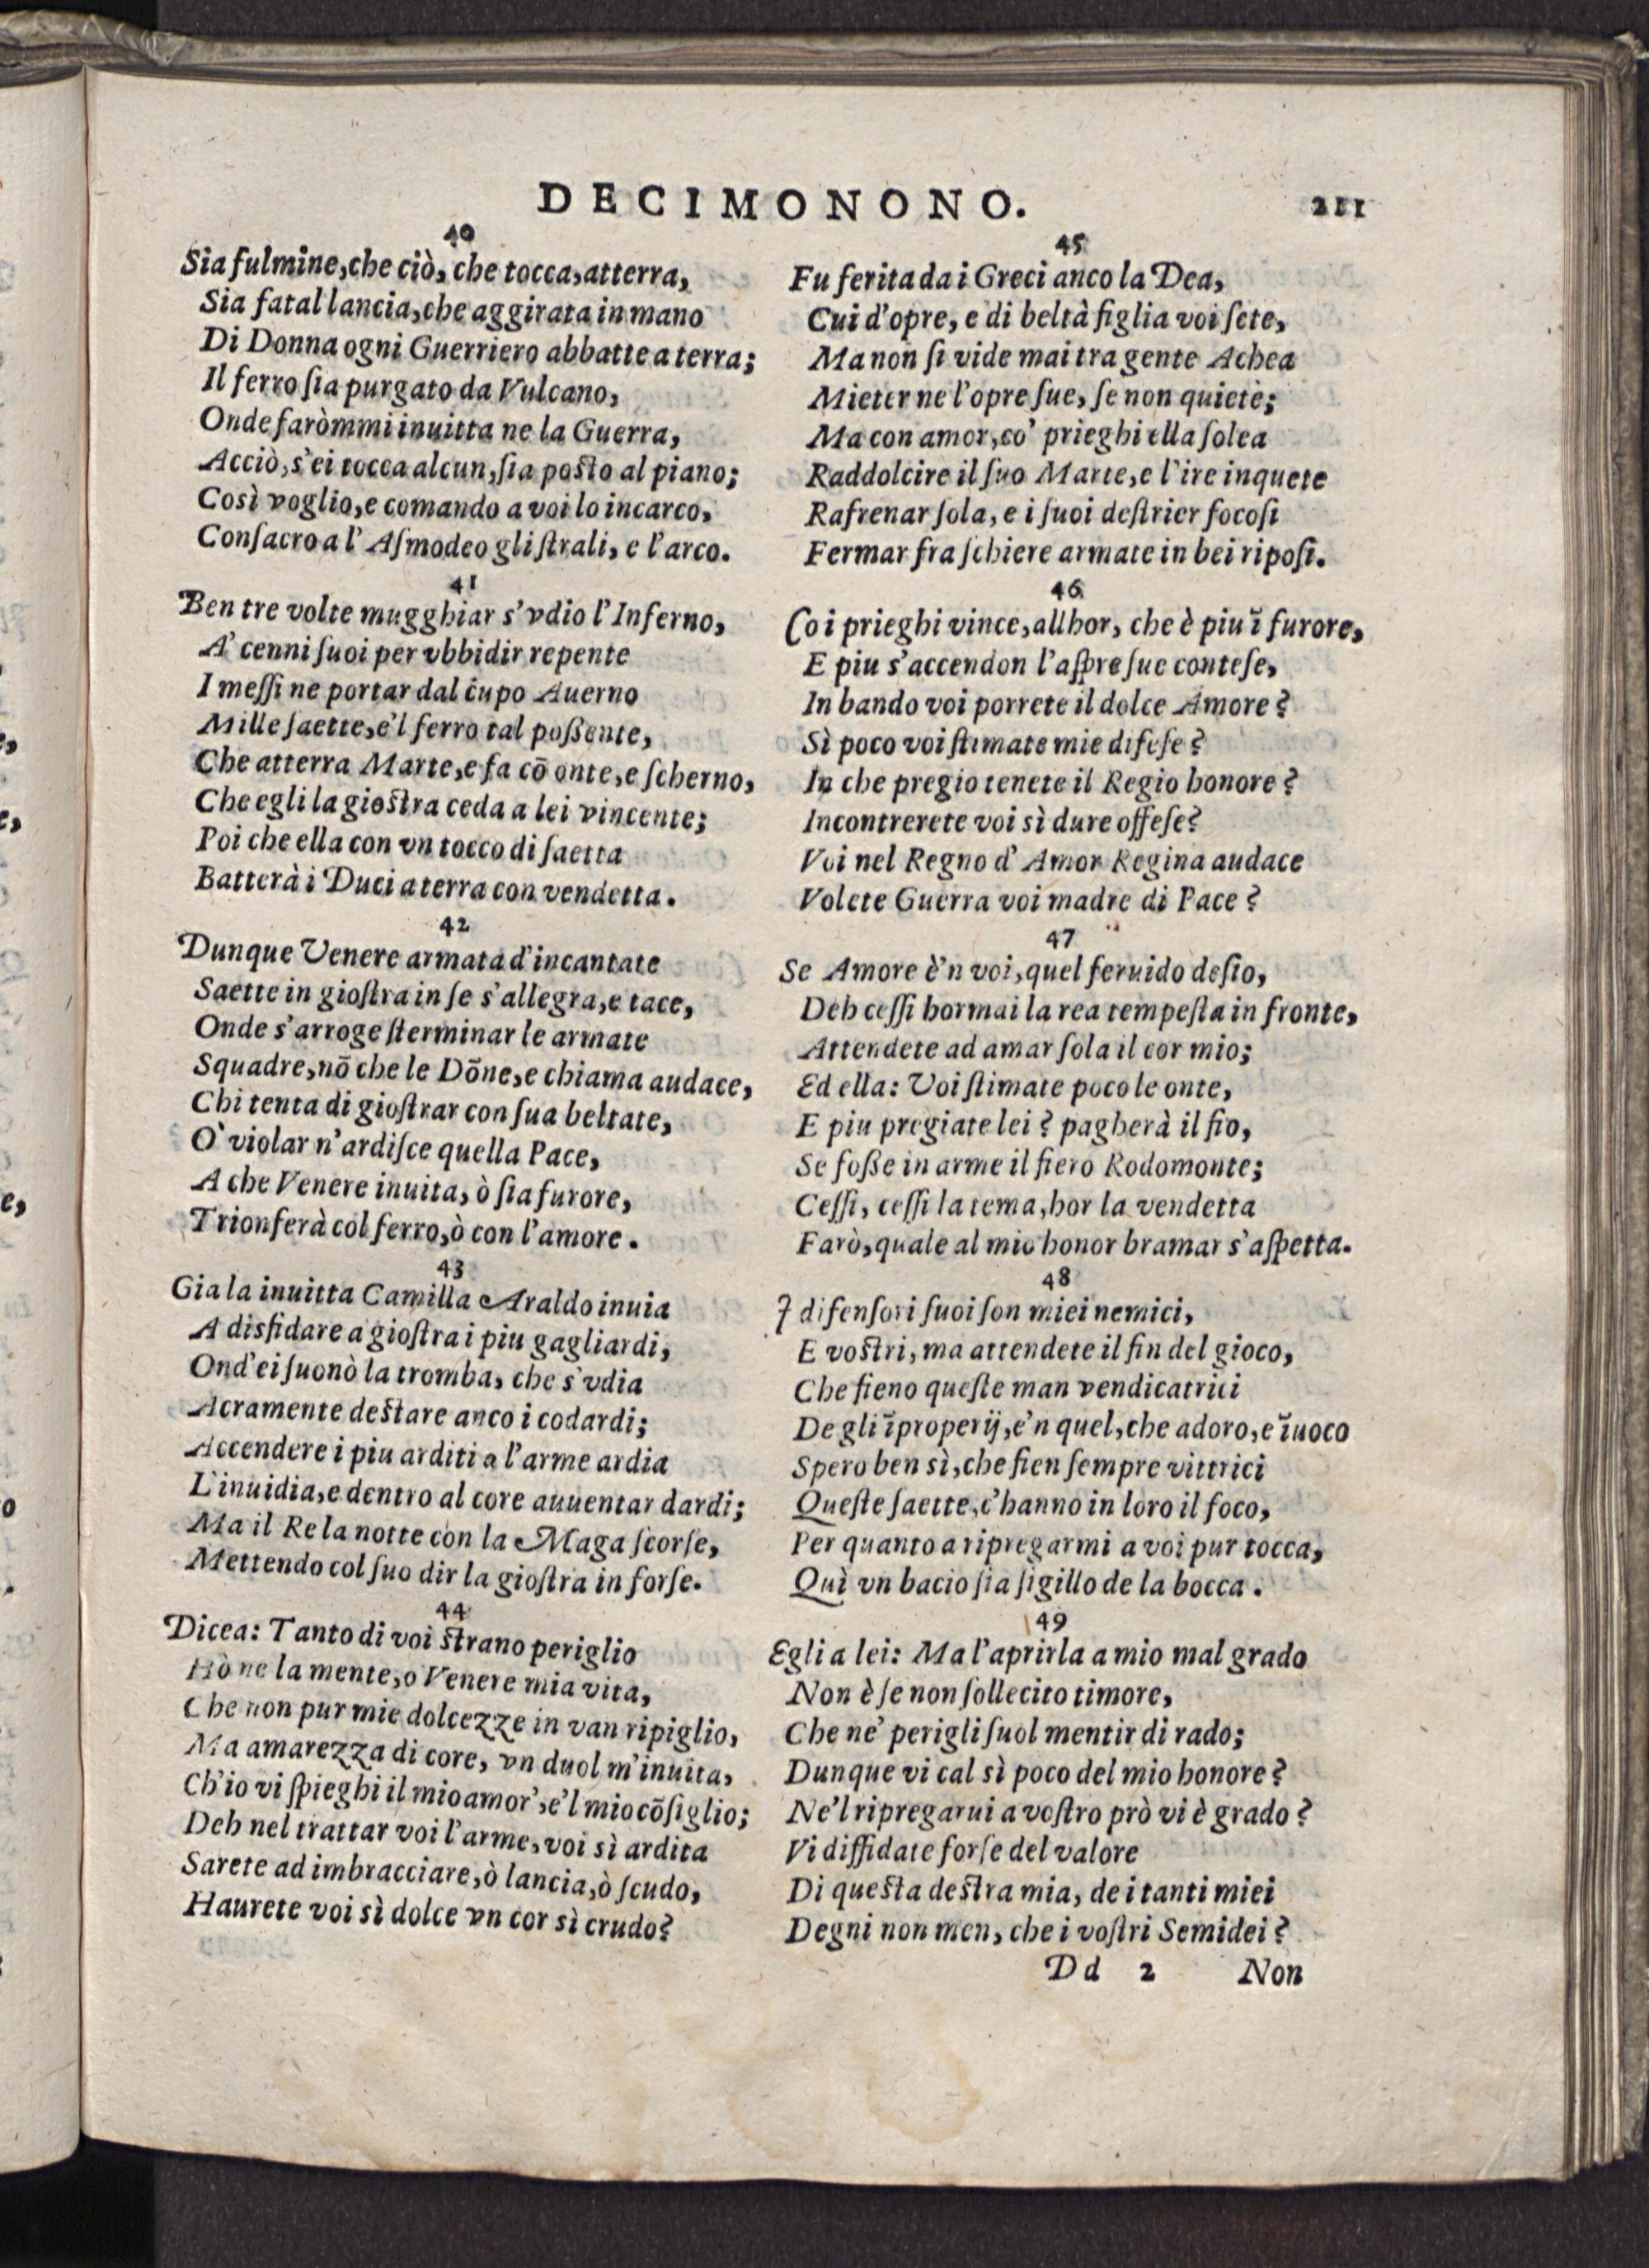 DECIMONONO. 211
40
Sia fulmine, che ciò, che tocca, atterra,
Sia fatal lancia, che aggirata in mano
Di Donna ogni Guerriero abbatte a terra;
Il ferro ſia purgato da Vulcano,
Onde faròmmi inuitta ne la Guerra,
Acciò, s'ei tocca alcun, ſia poſto al piano;
Così voglio, e comando a voi lo incarco,
Conſacro a l'Aſmodeo gli ſtrali, e l'arco.
41
Ben tre volte mugghiar s'vdio l'Inferno,
A' cenni ſuoi per vbbidir repente
I meſſi ne portar dal cupo Auerno
Mille ſaette, e'l ferro tal poßente,
Che atterra Marte, e fa cō onte, e ſcherno,
Che egli la gioſtra ceda a lei vincente;
Poi che ella con vn tocco di ſaetta
Batterà i Duci a terra con vendetta.
42
Dunque Venere armata d'incantate
Saette in gioſtra in ſe s'allegra, e tace,
Onde s'arroge ſterminar le armate
Squadre, nō che le Dōne, e chiama audace,
Chi tenta di gioſtrar con ſua beltate,
O' violar n'ardiſce quella Pace,
A che Venere inuita, ò ſia furore,
Trionferà col ferro, ò con l'amore.
43
Gia la inuitta Camilla Araldo inuia
A disfidare a gioſtra i piu gagliardi,
Ond'ei ſuonò la tromba, che s'vdia
Acramente deſtare anco i codardi;
Accendere i piu arditi a l'arme ardia
L'inuidia, e dentro al core auuentar dardi;
Ma il Re la notte con la Maga ſcorſe,
Mettendo col ſuo dir la gioſtra in forſe.
44
Dicea: Tanto di voi ſtrano periglio
Hò ne la mente, o Venere mia vita,
Che non pur mie dolcezze in van ripiglio,
Ma amarezza di core, vn duol m'inuita,
Ch'io vi ſpieghi il mio amor', e'l mio cōſiglio;
Deh nel trattar voi l'arme, voi sì ardita
Sarete ad imbracciare, ò lancia, ò ſcudo,
Haurete voi sì dolce vn cor sì crudo?
45
Fu ferita da i Greci anco la Dea,
Cui d'opre, e di beltà figlia voi ſete,
Ma non ſi vide mai tra gente Achea
Mieter ne l'opre ſue, ſe non quiete;
Ma con amor, co' prieghi ella ſolea
Raddolcire il ſuo Marte, e l'ire inquete
Rafrenar ſola, e i ſuoi deſtrier focoſi
Fermar fra ſchiere armate in bei ripoſi.
46
Co i prieghi vince, allhor, che è piu ĩ furore,
E piu s'accendon l'aſpre ſue conteſe,
In bando voi porrete il dolce Amore?
Sì poco voi ſtimate mie difeſe?
In che pregio tenete il Regio honore?
Incontrerete voi sì dure offeſe?
Voi nel Regno d'Amor Regina audace
Volete Guerra voi madre di Pace?
47
Se Amore è'n voi, quel feruido deſio,
Deh ceſſi hormai la rea tempeſta in fronte,
Attendete ad amar ſola il cor mio;
Ed ella: Voi ſtimate poco le onte,
E piu pregiate lei? pagherà il fio,
Se foße in arme il fiero Rodomonte;
Ceſſi, ceſſi la tema, hor la vendetta
Farò, quale al mio honor bramar s'aſpetta.
48
I difenſori ſuoi ſon miei nemici,
E voſtri, ma attendete il fin del gioco,
Che fieno queſte man vendicatrici
De gli ĩproperij, e'n quel, che adoro, e ĩuoco
Spero ben sì, che fien ſempre vittrici
Queſte ſaette, c'hanno in loro il foco,
Per quanto a ripregarmi a voi pur tocca,
Quì vn bacio ſia ſigillo de la bocca.
49
Egli a lei: Ma l'aprirla a mio mal grado
Non è ſe non ſollecito timore,
Che ne' perigli ſuol mentir di rado;
Dunque vi cal sì poco del mio honore?
Ne'l ripregarui a voſtro prò vi è grado?
Vi diffidate forſe del valore
Di queſta deſtra mia, de i tanti miei
Degni non men, che i voſtri Semidei?
Dd 2 Non